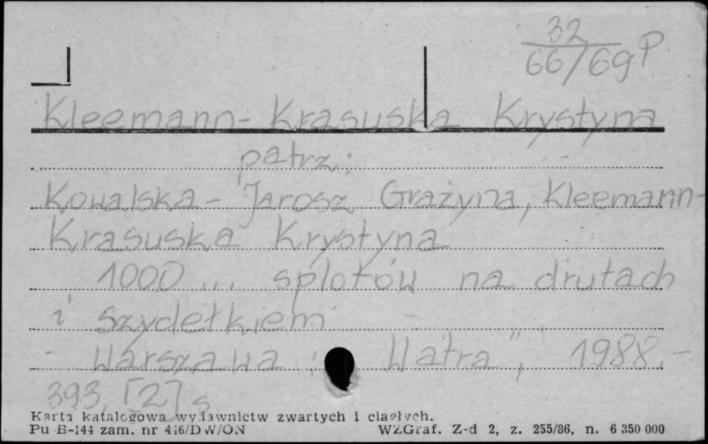 32
66/69 P
Kleemann-Krasuska Krystyna
patrz:
Kowalska-Jarosz Grażyna, Kleemann-
Krasuska Krystyna
1000 ... splotów na drutach
i szydełkiem
Warszawa : „Watra", 1988.-
393, [2] s
Karta katalogowa wydawnictw zwartych i ciągłych.
Pu B-144 zam. nr 416/DW/ON WZGraf. Z-d 2, z. 255/86, n. 6 350 000